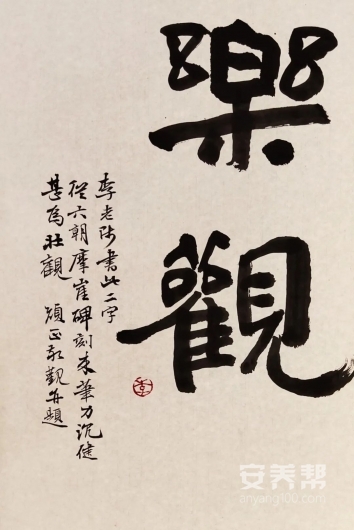 樂觀
李老師書此二字
從六朝摩崖碑刻來筆力沉健
甚為壯觀 敬觀并題
安养帮
anyang100.com